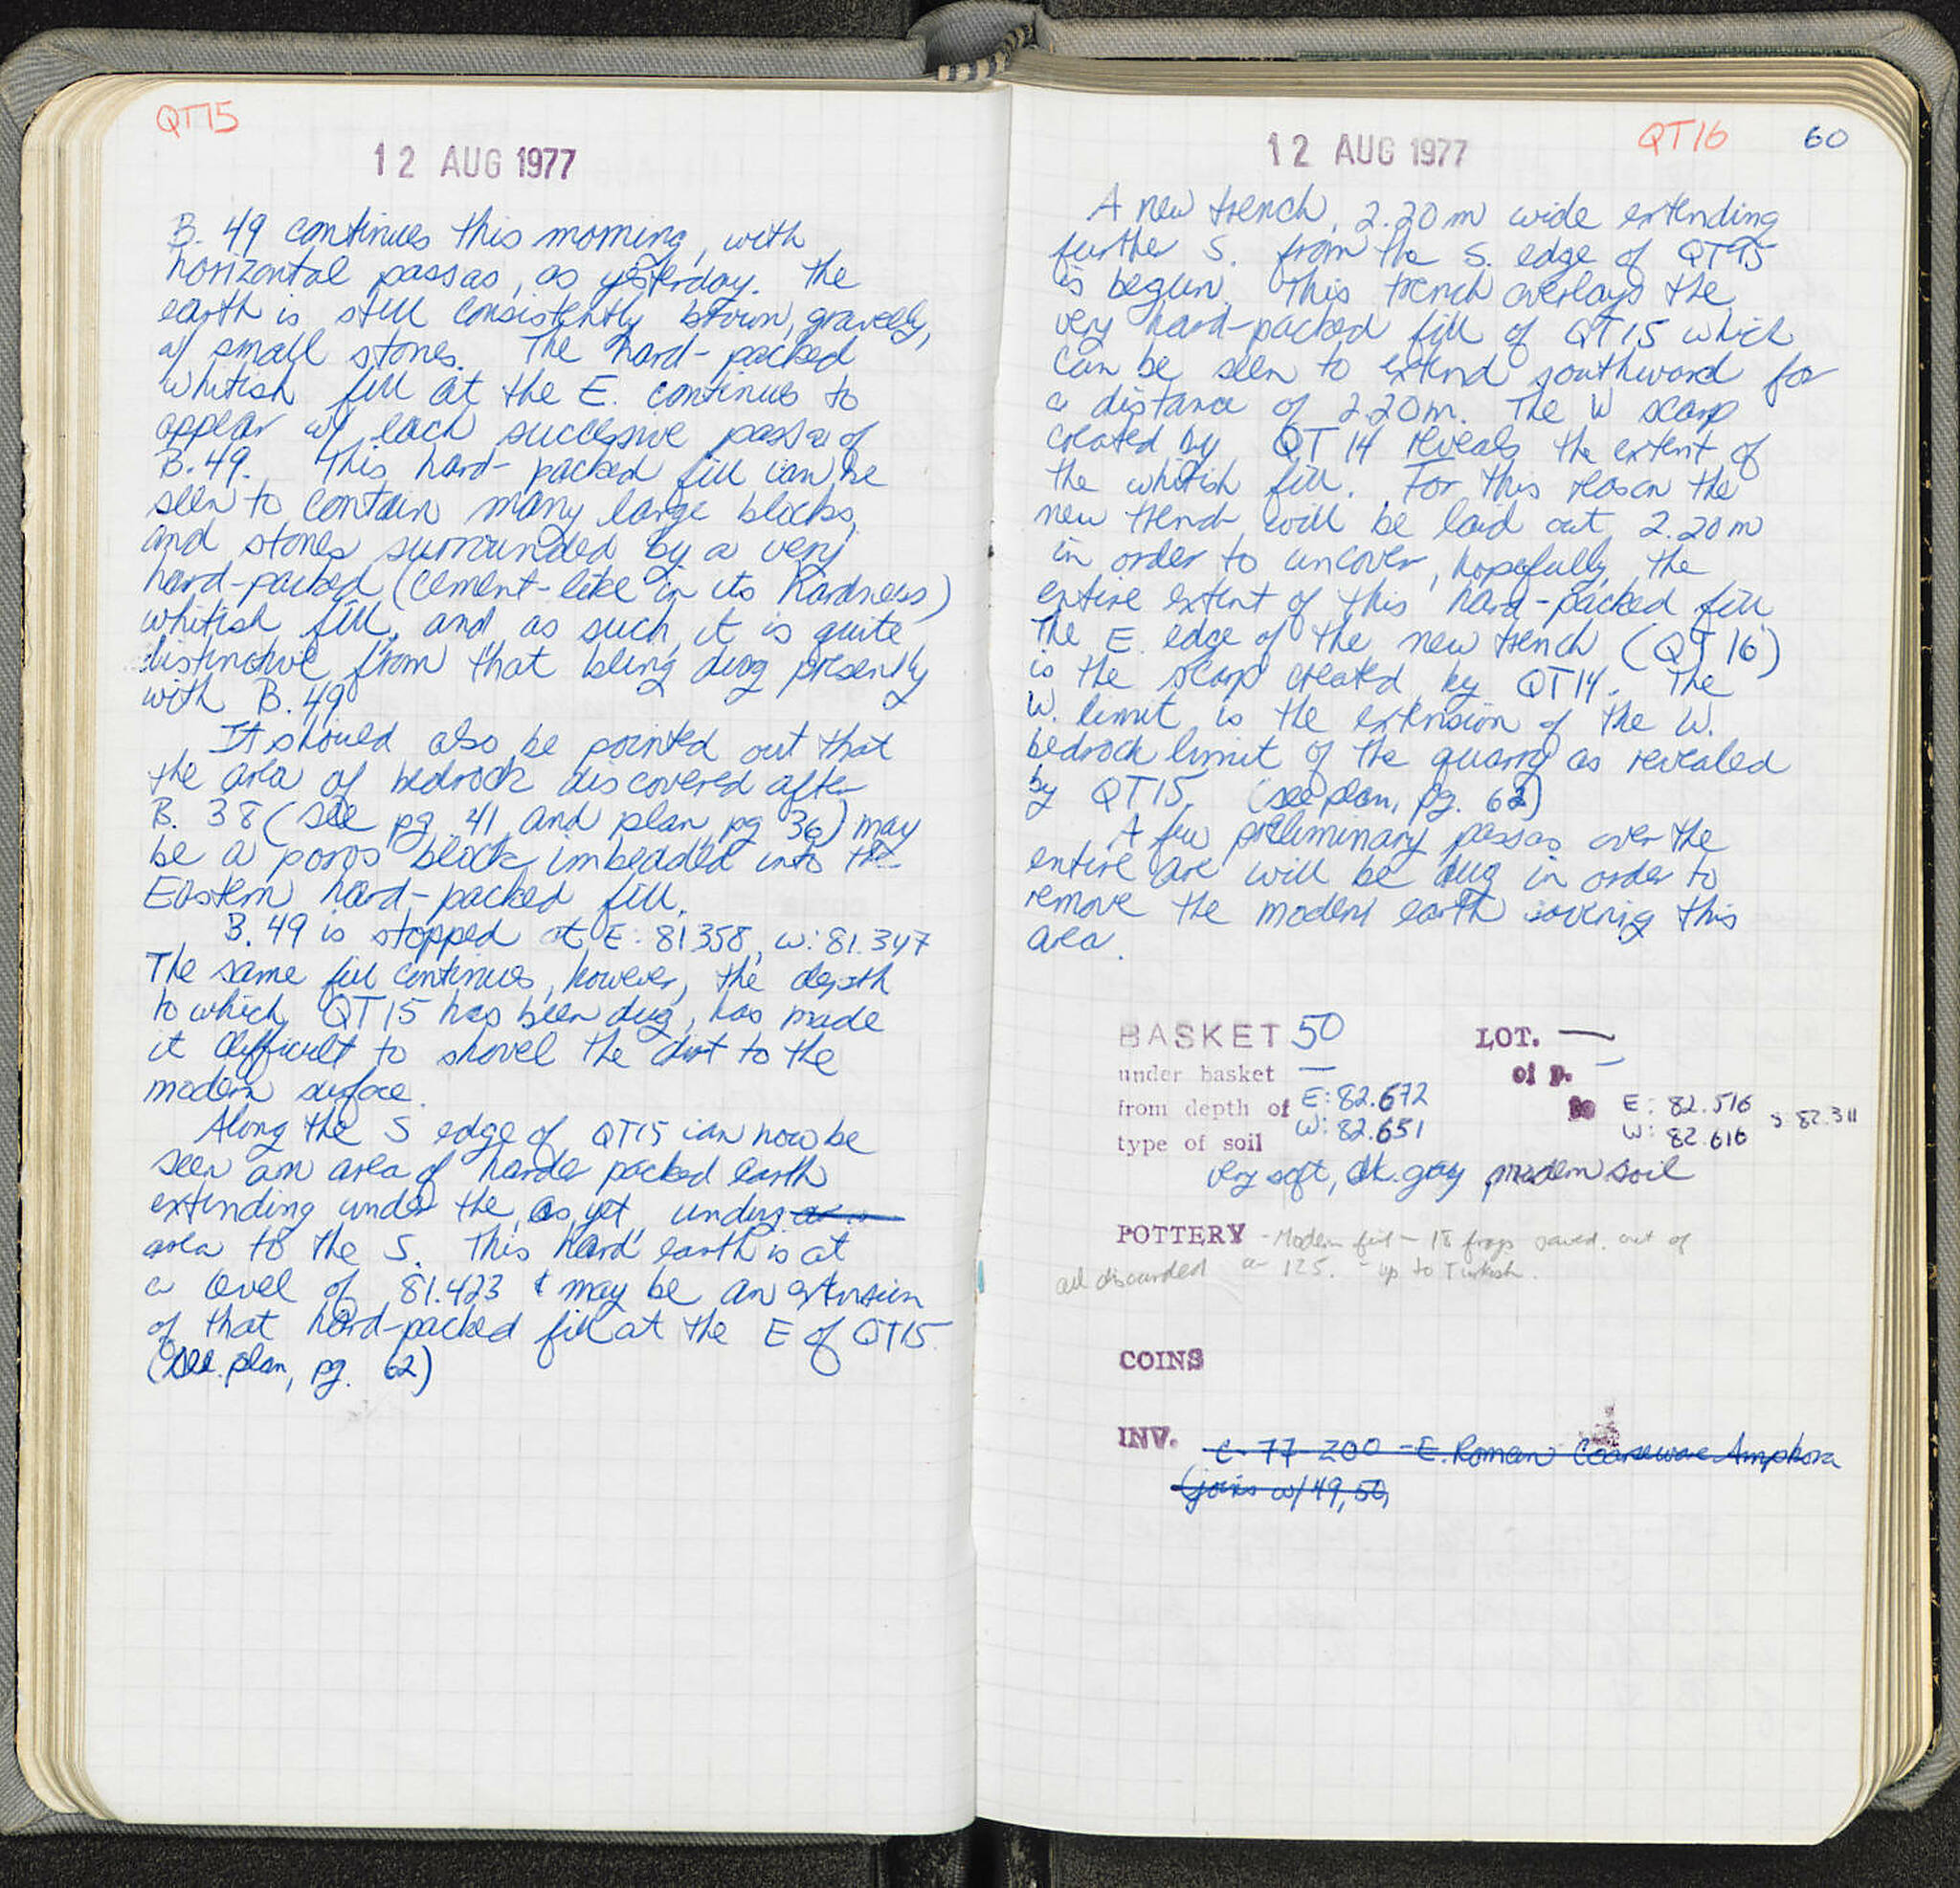 QT15
12 AUG 1977
B. 49 continues this morning, with
horizontal passas, as yesterday. The
earth is still consistently brown, gravelly,
w/ small stones. The hard-packed
whitish fill at the E. continues to
appear w/ each successive pass of
B.49. This hard-packed fill can be
seen to contain many large blocks,
and stones surrounded by a very
hard-packed (cement-like in its hardness)
whitish fill, and as such, it is quite
distinctive from that being dug presently
with B.49
It should also be pointed out that
the area of bedrock discovered after
B. 38 (see pg. 41 and plan, pg 36) may
be a poros block imbedded into the
Eastern hard-packed fill.
B.49 is stopped at E: 81.358, W: 81.347
The same fill continues, however, the depth
to which QT15 has been dug, has made
it difficult to shovel the dirt to the
modern surface.
Along the S edge of QT15 can now be
seen an area of harder packed earth
extending under the, as yet, undug
area to the S. This hard earth is at
a level of 81.423 & may be an extension
of that hard-packed fill at the E of QT15.
(see plan, pg. 62)
12 AUG 1977
QT16
60
A new trench, 2.20 m wide extending
further S. from the S. edge of QT15
is begun. This trench overlays the
very hard-packed fill of QT15 which
can be seen to extend southward for
a distance of 2.20m. The W scarp
created by QT14 reveals the extent of
the whitish fill. For this reason the
new trench will be laid out 2.20m
in order to uncover, hopefully, the
entire extent of this hard-packed fill.
The E. edge of the new trench (QT16)
is the scarp created by QT14. The
W. limit is the extension of the W.
bedrock limit of the quarry as revealed
by QT15. (see plan, pg. 62)
A few preliminary passas over the
entire are will be dug in order to
remove the modern earth covering this
area.
BASKET 50 LOT. —
under basket — of p. —
from depth of E: 82.672 to E: 82.516 S 82.311
W: 82.651 W: 82.616
type of soil
very soft, dk. gray modern soil
POTTERY - Modern fill - 18 frags saved. out of
all discarded a- 125. - up to Turkish.
COINS
INV. C-77-200 - E. Roman Coarseware Amphora
(joins w/ 49, 50)